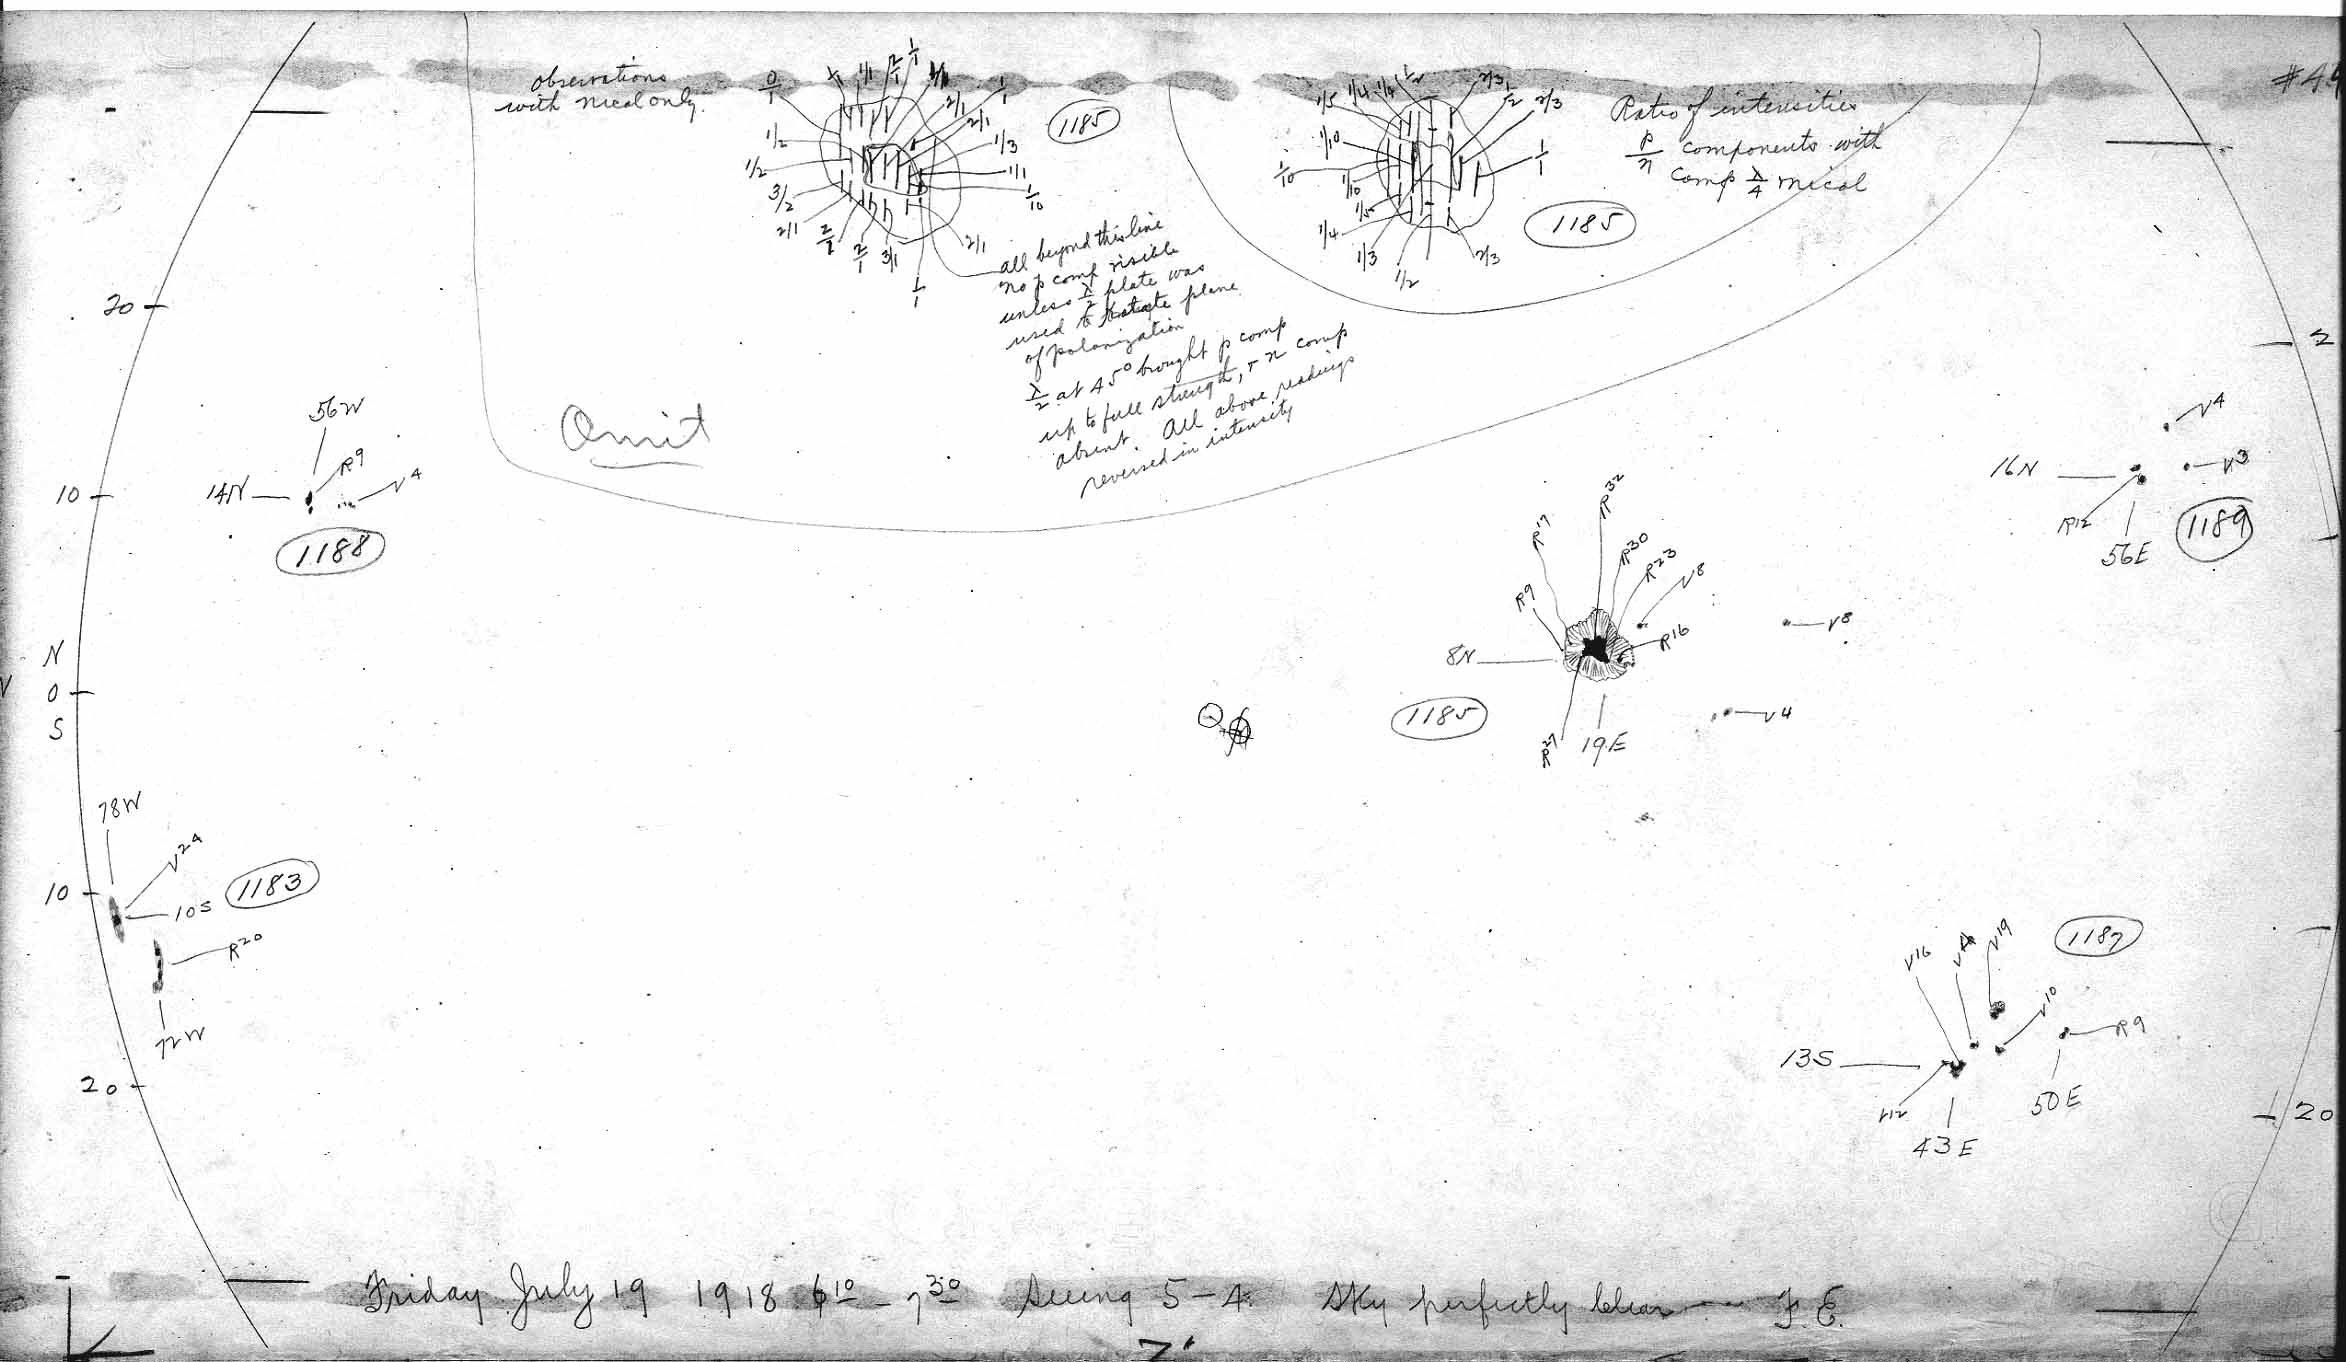 observations
with nicol only.
0/1
1/1
1/1
2/1
1/1
1/1
1/2
1/2
3/2
2/1
2/1
3/1
1/1
2/1
2/1
1/3
1/1
1/10
2/1
1185
all beyond this line
no p comp visible
unless λ/2 plate was
used to rotate plane
of polarization
λ/2 at 45° brought p comp
up to full strength, + n comp
absent. All above readings
reversed in intensity
1/5
1/4
1/4
1/2
2/3
1/2
2/3
1/10
1/10
1/10
1/5
1/4
1/3
1/2
2/3
1/1
1185
Ratio of intensities
p/n components with
comp λ/4 nicol
Omit
20
10
N
0
S
10
20
56W
14N
R9
V4
1188
V4
16N
V3
R12
56E
1189
R17
R32
R30
R23
V8
R9
R16
8N
V8
1185
R27
19E
V4
78W
V24
1183
10S
R20
72W
V16
V19
1187
V10
13S
R9
V12
43E
50E
2
20
Friday July 19 1918 6 10 - 7 30 Seeing 5-4. Sky perfectly clear — F.E.